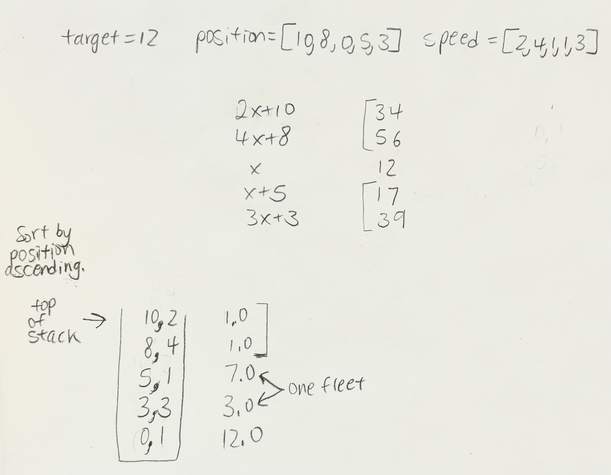 target=12 position=[10,8,0,5,3] speed=[2,4,1,1,3]
2x+10 [34
4x+8 [56
x 12
x+5 [17
3x+3 [39
Sort by
position
ascending.
top
of
stack →
10,2 1.0
8,4 1.0
5,1 7.0
one fleet
3,3 3.0
0,1 12.0